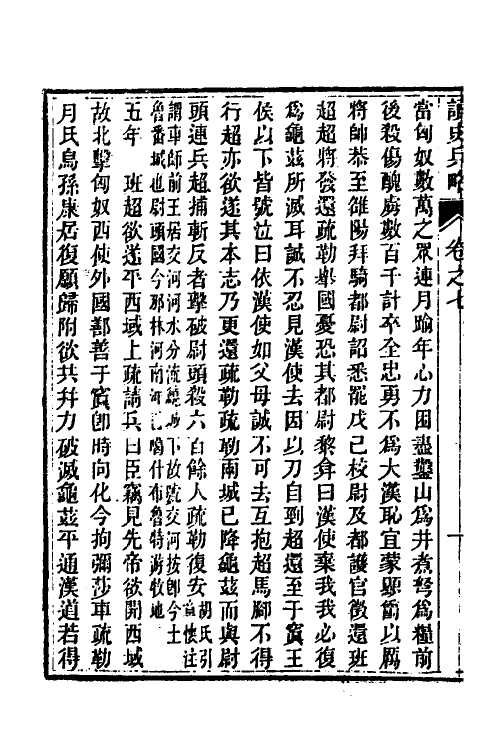 讀史兵略
卷之七
當匈奴數萬之眾連月踰年心力困盡鑿山爲井煮弩爲糧前
後殺傷醜虜數百千計卒全忠勇不爲大漢恥宜蒙顯爵以厲
將帥恭至雒陽拜騎都尉詔悉罷戊己校尉及都護官徵還班
超超將發還疏勒舉國憂恐其都尉黎弇曰漢使棄我我必復
爲龜茲所滅耳誠不忍見漢使去因以刀自剄超還至于窴王
侯以下皆號泣曰依漢使如父母誠不可去互抱超馬腳不得
行超亦欲遂其本志乃更還疏勒疏勒兩城已降龜茲而與尉
頭連兵超捕斬反者擊破尉頭殺六百餘人疏勒復安胡氏引章懷注
謂車師前王居交河河水分流繞城下故號交河按卽今土
魯番城也尉頭國今那林河南河已喝什布魯特游牧地
五年　班超欲遂平西域上疏請兵曰臣竊見先帝欲開西域
故北擊匈奴西使外國鄯善于窴卽時向化今拘彌莎車疏勒
月氏烏孫康居復願歸附欲共幷力破滅龜茲平通漢道若得